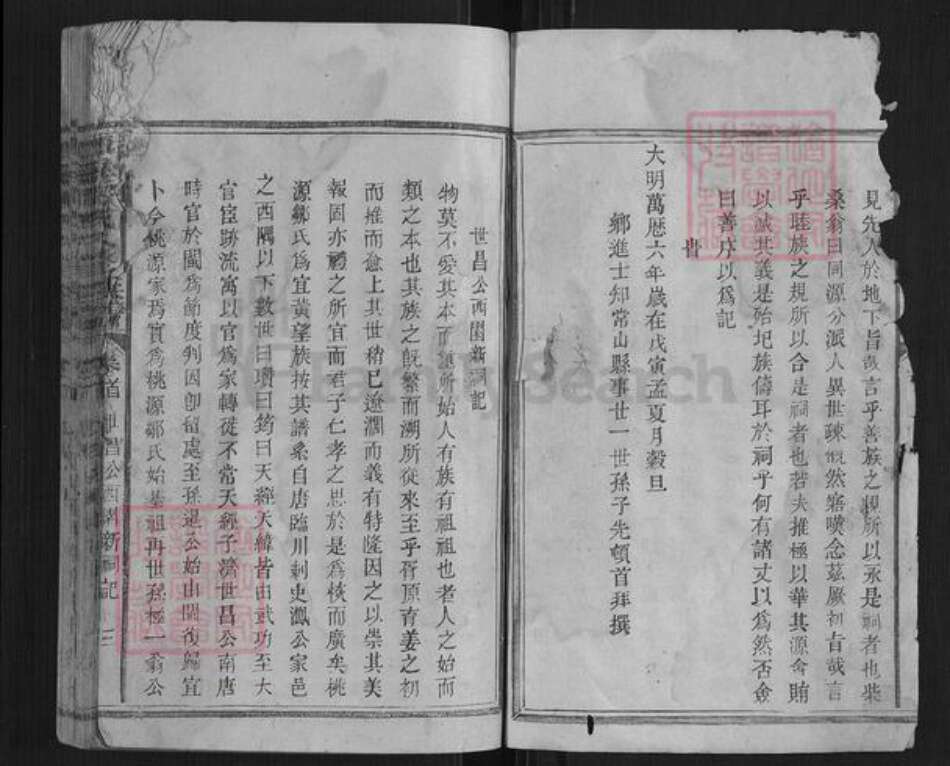 見先人於地下旨哉言乎善族之規所以永是祠者也柴
桑翁曰同源分派人異世疎慨然寤嘆念茲厥初旨哉言
乎睦族之規所以合是祠者也若夫推極以華其源含賄
以誠其義是殆圯族儔耳於祠乎何有諸丈以為然否僉
曰善序以為記
大明萬曆六年歲在戊寅孟夏月榖旦
鄉進士知常山縣事世一世孫子先頓首拜撰
世昌公西園新祠記
物莫不愛其本而 所始人有族有祖祖也者人之始而
類之本也其族之既繁而溯所從來至乎胥原育姜之初
而推而愈上其世稍已遼濶而義有特隆因之以崇其美
報固亦禮之所宜而君子仁孝之思於是為核而廣矣桃
源鄒氏為宜黃望族按其譜系自唐臨川刺史瀻公家邑
之西隅以下數世曰瓚曰筠曰天經天緯皆由武功至大
官宦跡流寓以官為家轉徙不常天經子濟世昌公南唐
時官於閩為節度判因卽留處至孫 公始由閩復歸宜
卜今桃源家焉實為桃源鄒氏始基祖再世孫極一翁公
卷首 世昌公西園新祠記 三
Family Search